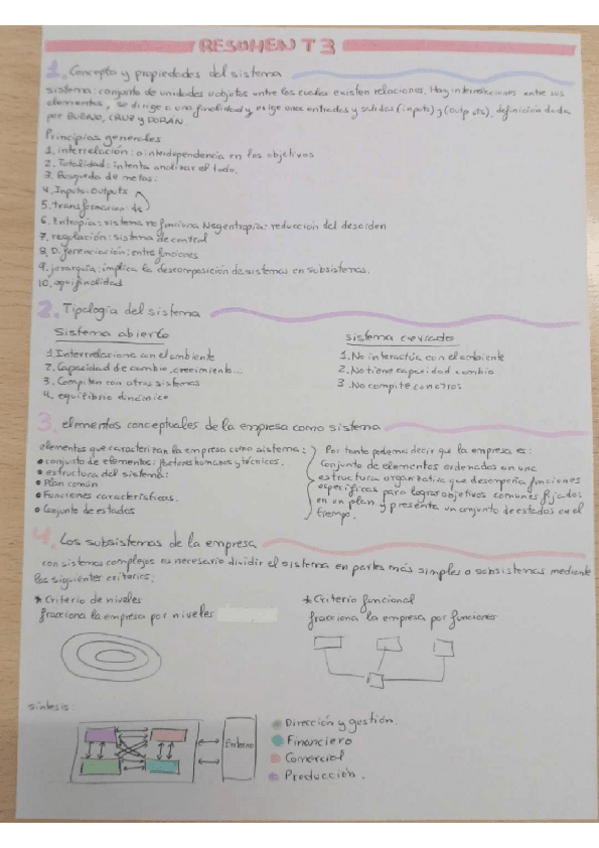 RESUMEN T3
1. Concepto y propiedades del sistema
sistema: conjunto de unidades u objetos entre los cuales existen relaciones. Hay interrelaciones entre sus
elementos, se dirige a una finalidad y exige unas entradas y salidas (inputs) y (outputs), definición dada
por BUENO, CRUZ y DURÁN
Principios generales
1. interrelación: o interdependencia en los objetivos
2. Totalidad: intenta analizar el todo.
3. Búsqueda de metas:
4. Inputs-Outputs
5. transformación de
6. Entropía: sistema no funciona Negentropía: reducción del desorden
7. regulación: sistema de control
8. Diferenciación: entre funciones
9. jerarquía: implica la descomposición de sistemas en subsistemas.
10. equifinalidad
2. Tipología del sistema
Sistema abierto
1. Interrelaciona con el ambiente
2. Capacidad de cambio, crecimiento...
3. Compiten con otros sistemas
4. equilibrio dinámico
sistema cerrado
1. No interactúa con el ambiente
2. No tiene capacidad cambio
3. No compite con otros
3. elementos conceptuales de la empresa como sistema
elementos que caracterizan la empresa como sistema:
• conjunto de elementos: factores humanos y técnicos.
• estructura del sistema:
• Plan común
• Funciones características.
• Conjunto de estados
Por tanto podemos decir que la empresa es:
Conjunto de elementos ordenados en una
estructura organizativa que desempeña funciones
específicas para lograr objetivos comunes fijados
en un plan y presenta un conjunto de estados en el
tiempo.
4. Los subsistemas de la empresa
con sistemas complejos es necesario dividir el sistema en partes más simples o subsistemas mediante
los siguientes criterios:
* Criterio de niveles
fracciona la empresa por niveles
* Criterio funcional
fracciona la empresa por funciones
síntesis:
Entorno
Dirección y gestión.
Financiero
Comercial
Producción.